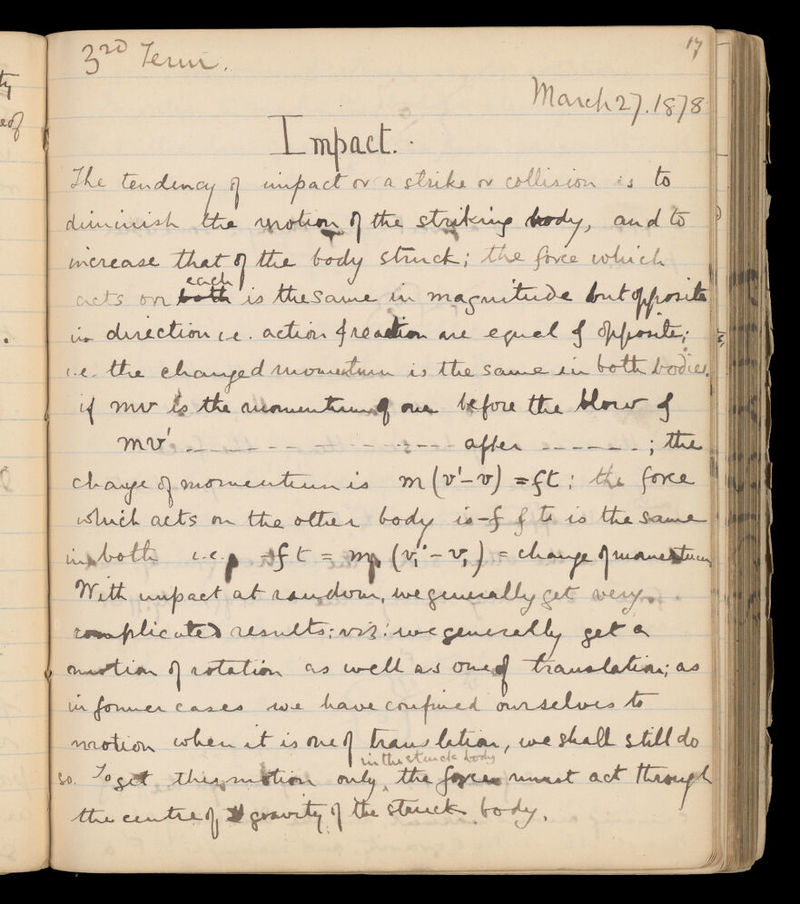 3rd Term.
17
March 27. 1878
Impact.
The tendency of impact or a strike or collision is to
diminish the motion of the striking body, and to
increase that of the body struck; the force which
each
acts on both is the same in magnitude but opposite
in direction i.e. action & reaction are equal & opposite;
i.e. the changed momentum is the same in both bodies.
if mv is the momentum of one before the blow &
mv' - - - - - - - - - - - after - - - - - - ; the
change of momentum is m(v'-v) = ft; the force
which acts on the other body is -f & t is the same
in both i.e. -ft = m, (v,' - v,) = change of momentum
With impact at random, we generally get very
complicated results; viz: we generally get a
motion of rotation as well as one of translation; as
in former cases we have confined ourselves to
motion when it is one of translation, we shall still do
in the struck body
so. To get this motion only, the force must act through
the centre of gravity of the struck body.
ty
eof